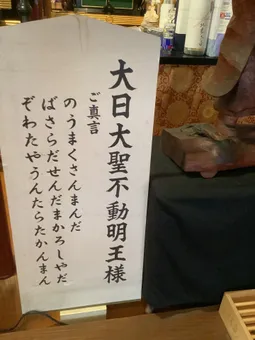 大日大聖不動明王様
ご真言
のうまくさんまんだ
ばさらだせんだまかろしやだ
ぞわたやうんたらたかんまん